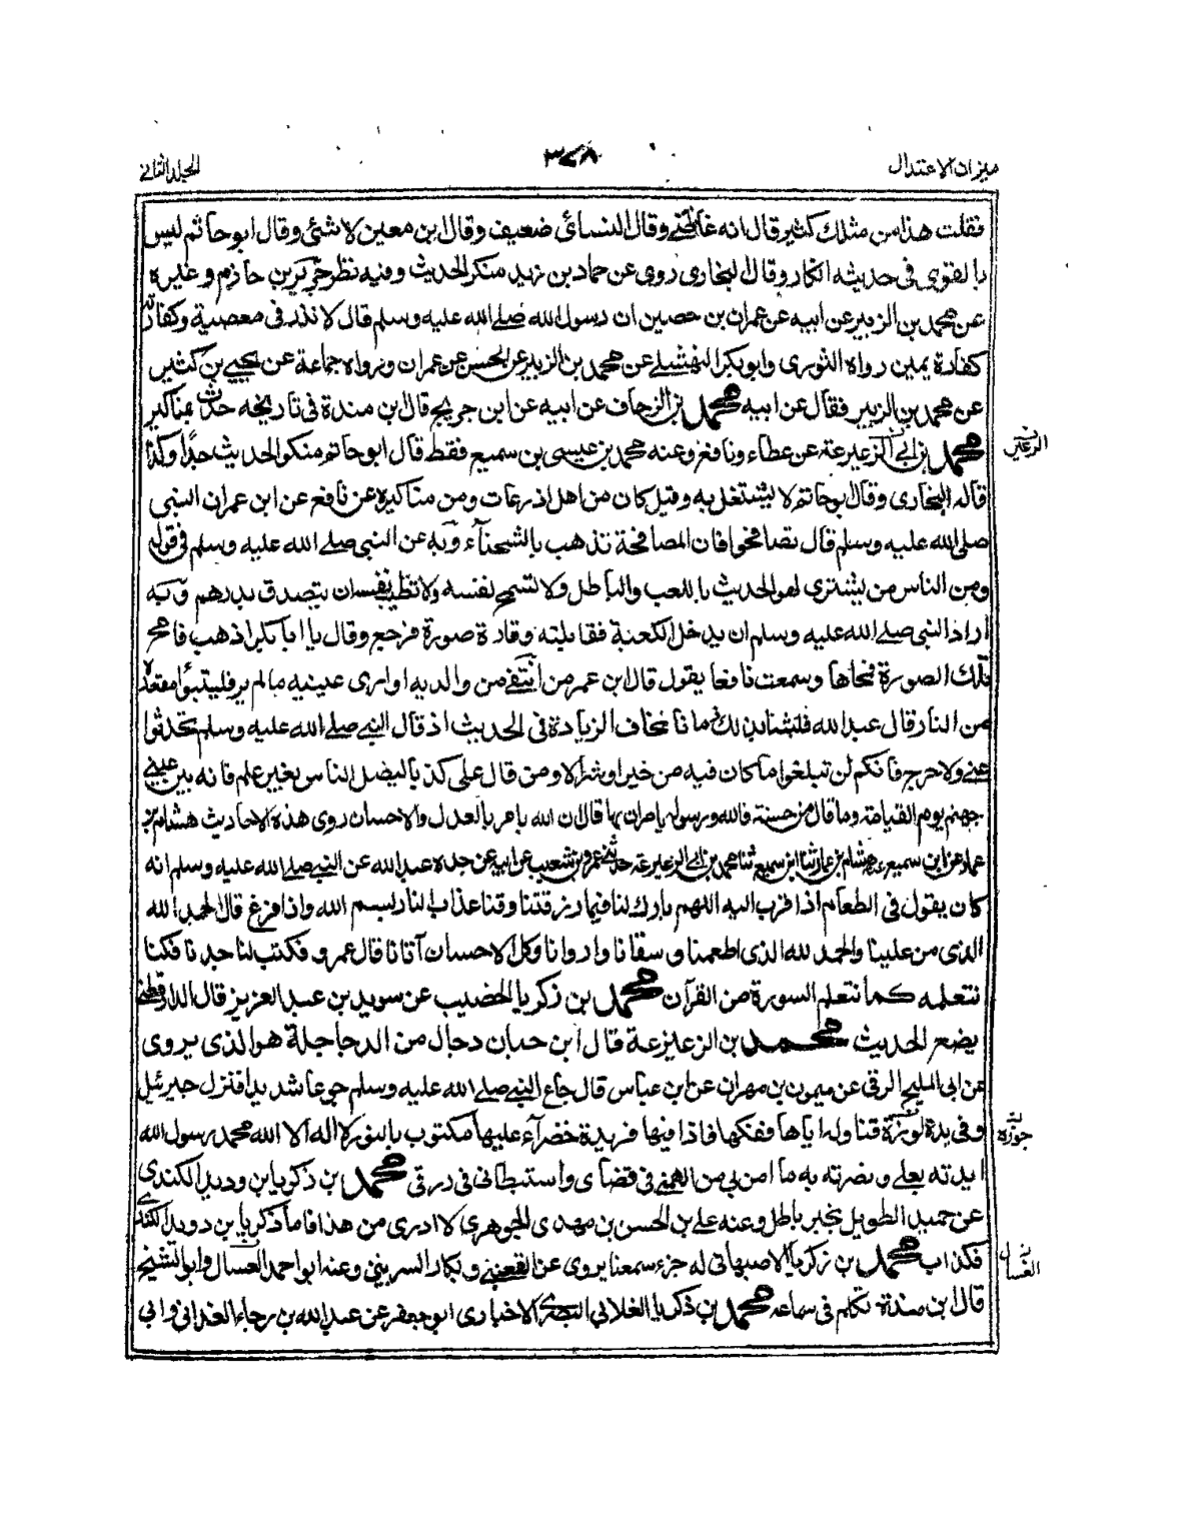 ميزان الاعتدال
٣٧٨
المجلد الثانى
فقلت هذا من مثلك كثير قال انه غاظنى وقال النسائى ضعيف وقال ابن معين لا شئ وقال ابو حاتم ليس
بالقوى فى حديثه انكار وقال البخارى روى عن حماد بن زيد منكر الحديث وفيه نظر جرير بن حازم وغيره
عن محمد بن الزبير عن ابيه عن عمران بن حصين ان رسول الله صلى الله عليه وسلم قال لا نذر فى معصية وكفارته
كفارة يمين رواه الثورى وابو بكر النهشلى عن محمد بن الزبير عن الحسن عن عمران ورواه جماعة عن يحيى بن كثير
عن محمد بن الزبير فقال عن ابيه محمد بن الزحاف عن ابيه عن ابن جريج قال ابن مندة فى تاريخه حدث بمناكير
محمد بن ابى الزعيزعة عن عطاء ونافع وعنه محمد بن عيسى بن سميع فقط قال ابو حاتم منكر الحديث جدا وكذا
قاله البخارى وقال ابو حاتم لا يشتغل به وقيل كان من اهل اذرعات ومن مناكيره عن نافع عن ابن عمر ان النبى
صلى الله عليه وسلم قال تصافحوا فان المصافحة تذهب بالشحناء وبه عن النبى صلى الله عليه وسلم فى قوله
ومن الناس من يشترى لهو الحديث باللعب والباطل ولا تسمح نفسه ولا تطيب نفسان يتصدق بدرهم وبه
اراد النبى صلى الله عليه وسلم ان يدخل الكعبة فقابلته وقادة صورة فرجع وقال يا ابا بكر اذهب فامح
تلك الصورة فمحاها وسمعت نافعا يقول قال ابن عمر من انتفى من والديه او ارى عينيه ما لم ير فليتبوأ مقعده
من النار قال عبد الله فلبثنا بذلك زمانا نخاف الزيادة فى الحديث اذ قال النبى صلى الله عليه وسلم تحدثوا
عنى ولا حرج فانكم لن تبلغوا ما كان فيه من خير او شر الا ومن قال على كذبا ليضل الناس بغير علم فانه بين عينى
جهنم يوم القيامة وما قال من حسنة فالله ورسوله يامران بها قال ان الله يامر بالعدل والاحسان روى هذه الاحاديث هشام بن
عمار عن ابن سميع عنه هشام بن عمار ثنا ابن سميع ثنا محمد بن ابى الزعيزعة حدثنى عمرو بن شعيب عن ابيه عن جده عبد الله عن النبى صلى الله عليه وسلم انه
كان يقول فى الطعام اذا قرب اليه اللهم بارك لنا فيما رزقتنا وقنا عذاب النار بسم الله واذا فرغ قال الحمد لله
الذى من علينا والحمد لله الذى اطعمنا وسقانا واروانا وكل الاحسان آتانا قال عمرو فكتب لنا جدنا فكنا
نتعلمه كما نتعلم السورة من القرآن محمد بن زكريا الخضيب عن سويد بن عبد العزيز قال الدارقطنى
يضع الحديث محمد بن الزعيزعة قال ابن حبان دجال من الدجاجلة هو الذى يروى
عن ابى المليح الرقى عن ميمون بن مهران عن ابن عباس قال جاع النبى صلى الله عليه وسلم جوعا شديدا فنزل جبرئيل
وفى يده لوزة فناوله اياها ففكها فاذا فيها فريدة خضراء عليها مكتوب بالنور لا اله الا الله محمد رسول الله
ايدته بعلى ونصرته به ما امن بى من اتهمنى فى قضاى واستبطانى فى رزقى محمد بن زكريا بن دويد الكندى
عن حميد الطويل بخبر باطل وعنه على بن الحسن بن مهدى الجوهرى لا ادرى من هذا فاما زكريا بن دويد الكندى
فكذاب محمد بن زكريا الاصبهانى له جزء سمعنا يروى عن القعنبى وبكار السرينى وعنه ابو احمد العسال وابو الشيخ
قال ابن مندة تكلم فى سماعه محمد بن زكريا الغلابى البصرى الاخبارى ابو جعفر عن عبد الله بن رجاء الغدانى وابى
جوزة
الغسال